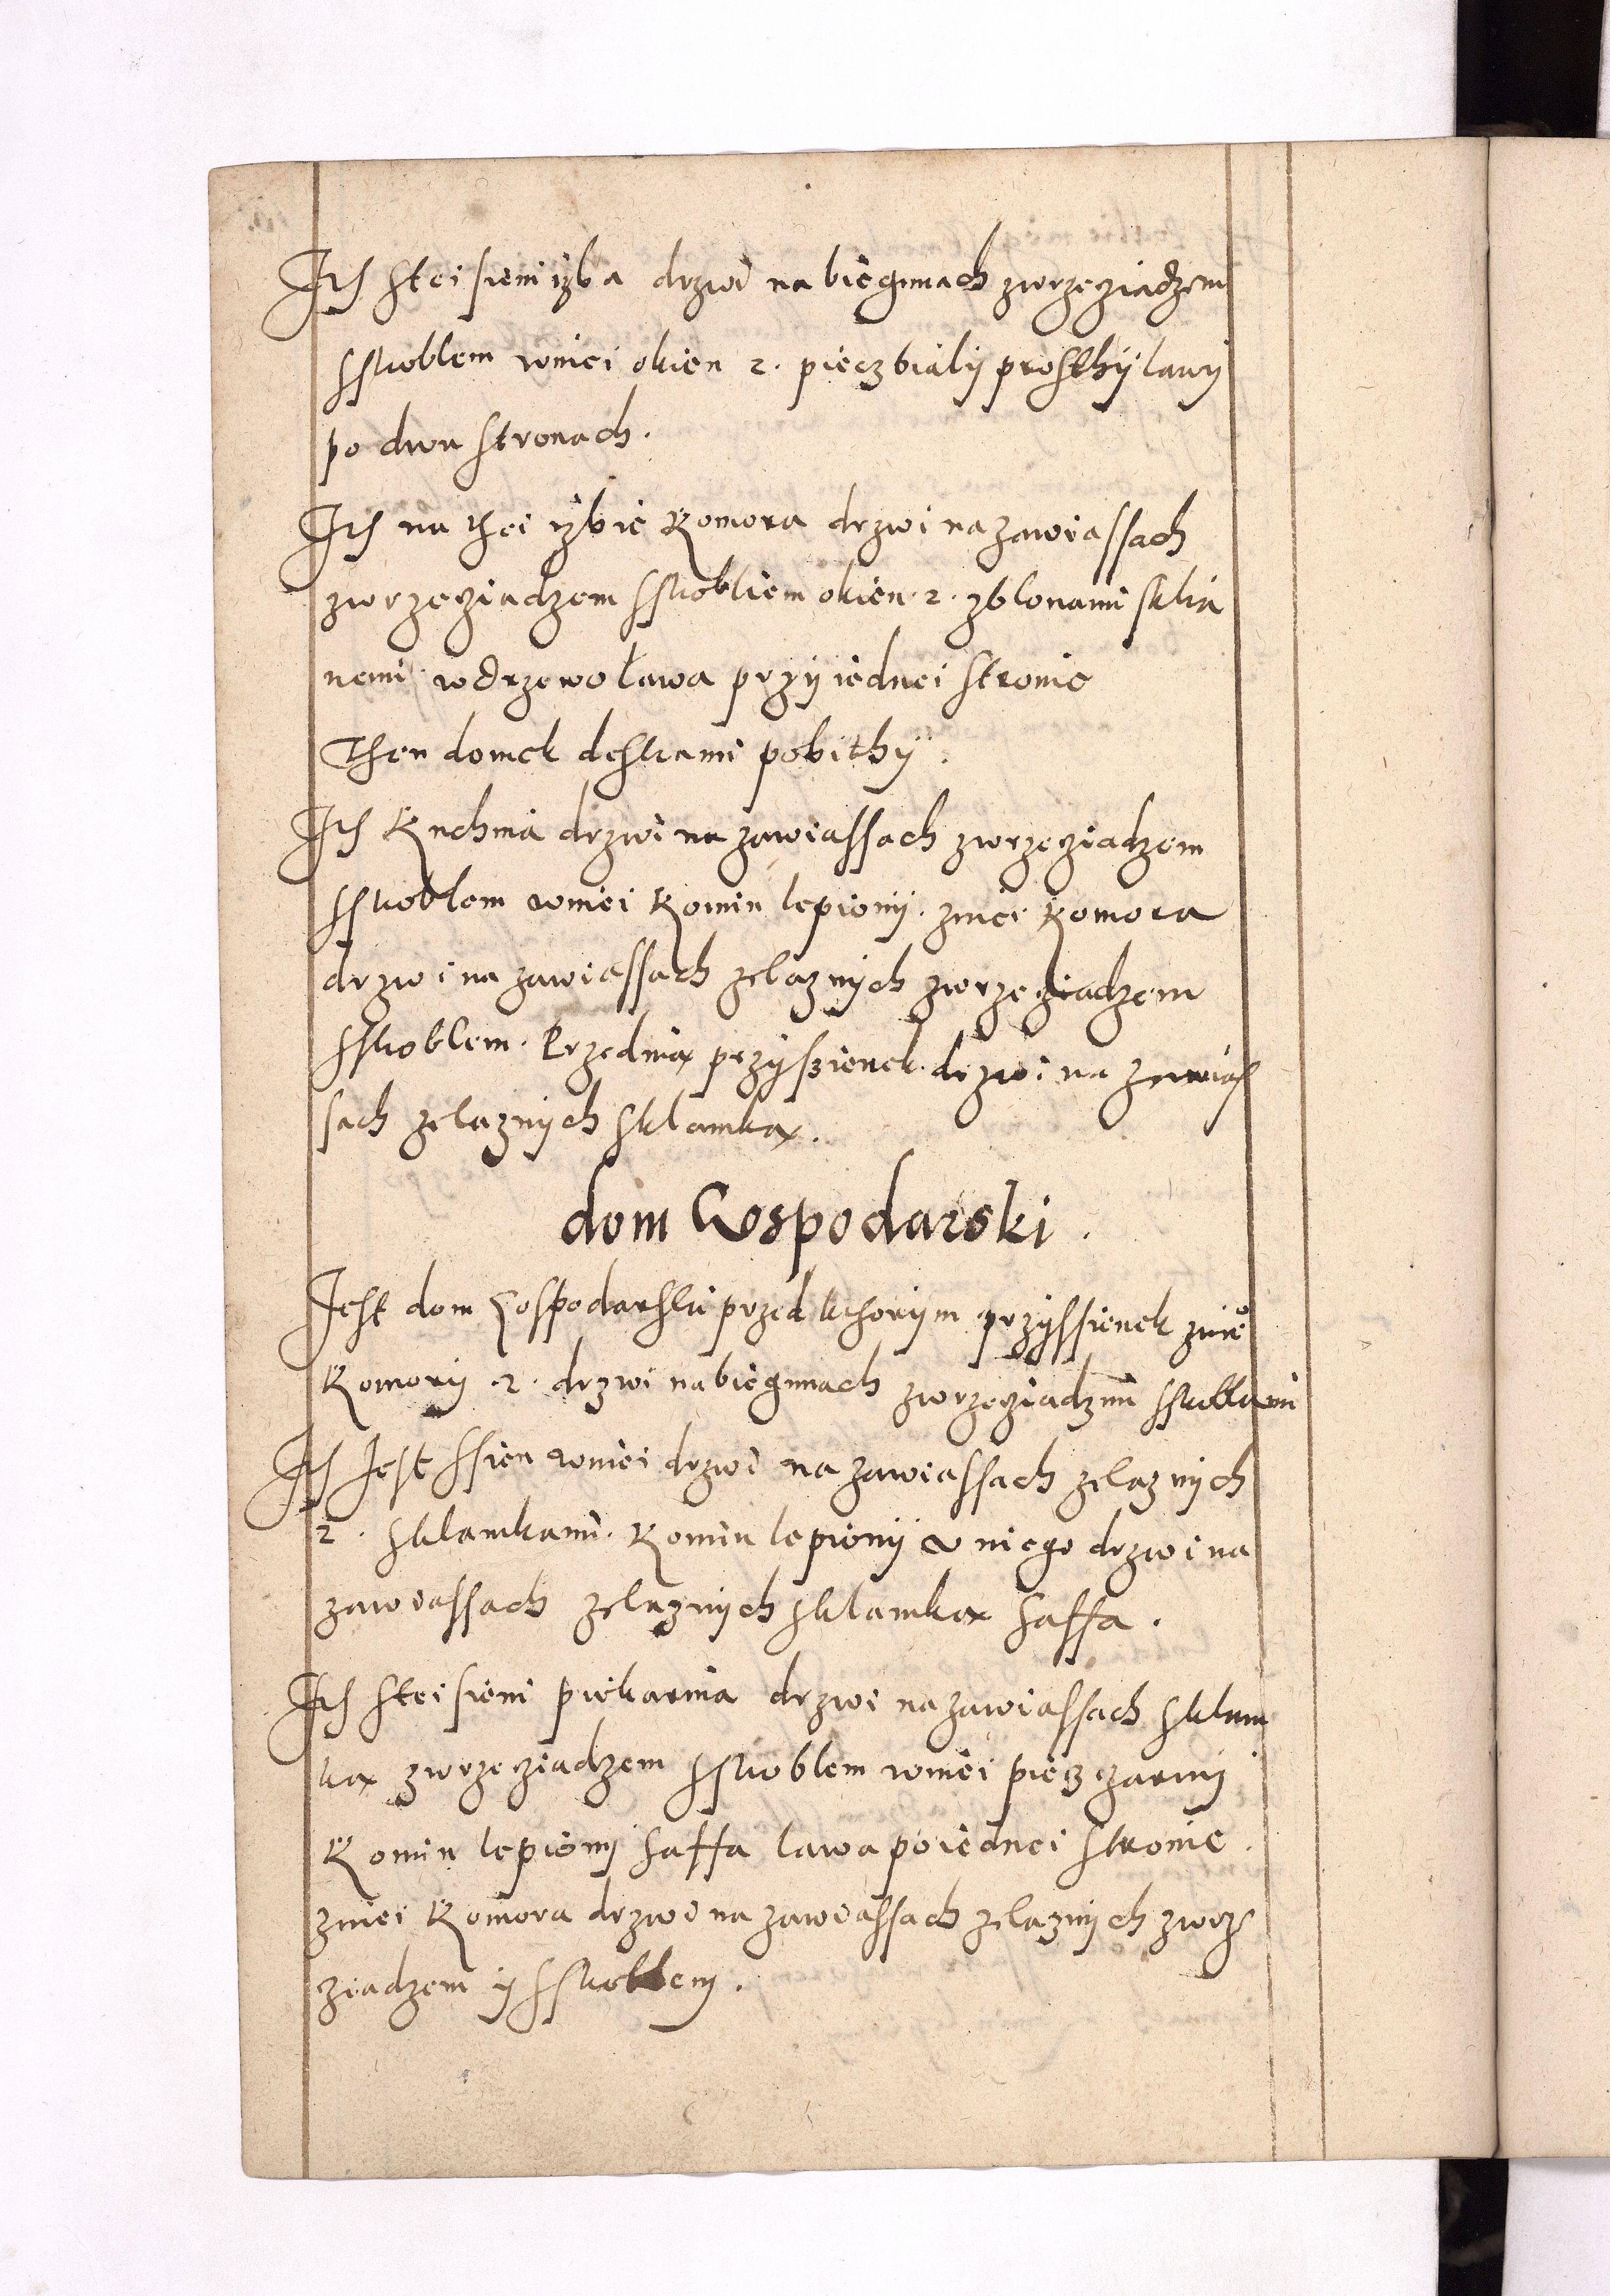 Jth stei sieni izba drzwi na biegunach zwrzecziadzem
sskoblem wniei okien 2. piecz bialy prosthÿ lawÿ
po dwu stronach.
Jth na thei yzbie Komora drzwi na zawiassach
zwrzecziadzem sskobliem okien 2. zblonami sklia
nemi wdrzewo ława przÿ iednei stronie
Then domek deskami pobithÿ.
Jth Kuchnia drzwi na zawiassach zwrzecziadzem
sskoblem wniei Komin lepionÿ. zniei Komora
drzwi na zawiassach zelaznÿch zwrzecziadzem
sskoblem. Przednia przÿszienek drzwi na zawias
sach zelaznÿch sklamka.
dom Gospodarski.
Jest dom Gospodarski przed kthorÿm przÿssienek znie
Komorÿ .2. drzwi na biegunach zwrzecziadzmi sskoblami
Jth Jest ssien wniei drzwi na zawiassach zelaznÿch
2. sklamkami. Komin lepionÿ v niego drzwi na
zawiassach zelaznÿch sklamka saffa.
Jth stei sieni piekarnia drzwi na zawiassach sklam
ka zwrzecziadzem sskoblem wniei piecz czarnÿ
Komin lepionÿ saffa lawa po iednei stronie.
zniei Komora drzwi na zawiassach zelaznÿch zwrze
ziadzem ÿ sskoblem.